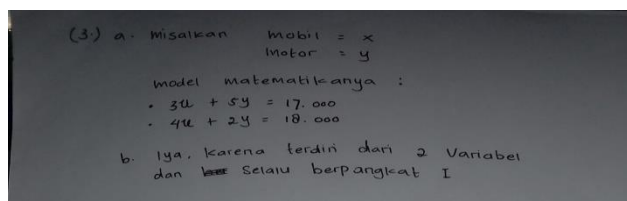 (3.) a. Misalkan Mobil = x
Motor = y
model matematikanya :
• 3x + 5y = 17.000
• 4x + 2y = 18.000
b. Iya, Karena terdiri dari 2 Variabel
dan Selalu berpangkat I